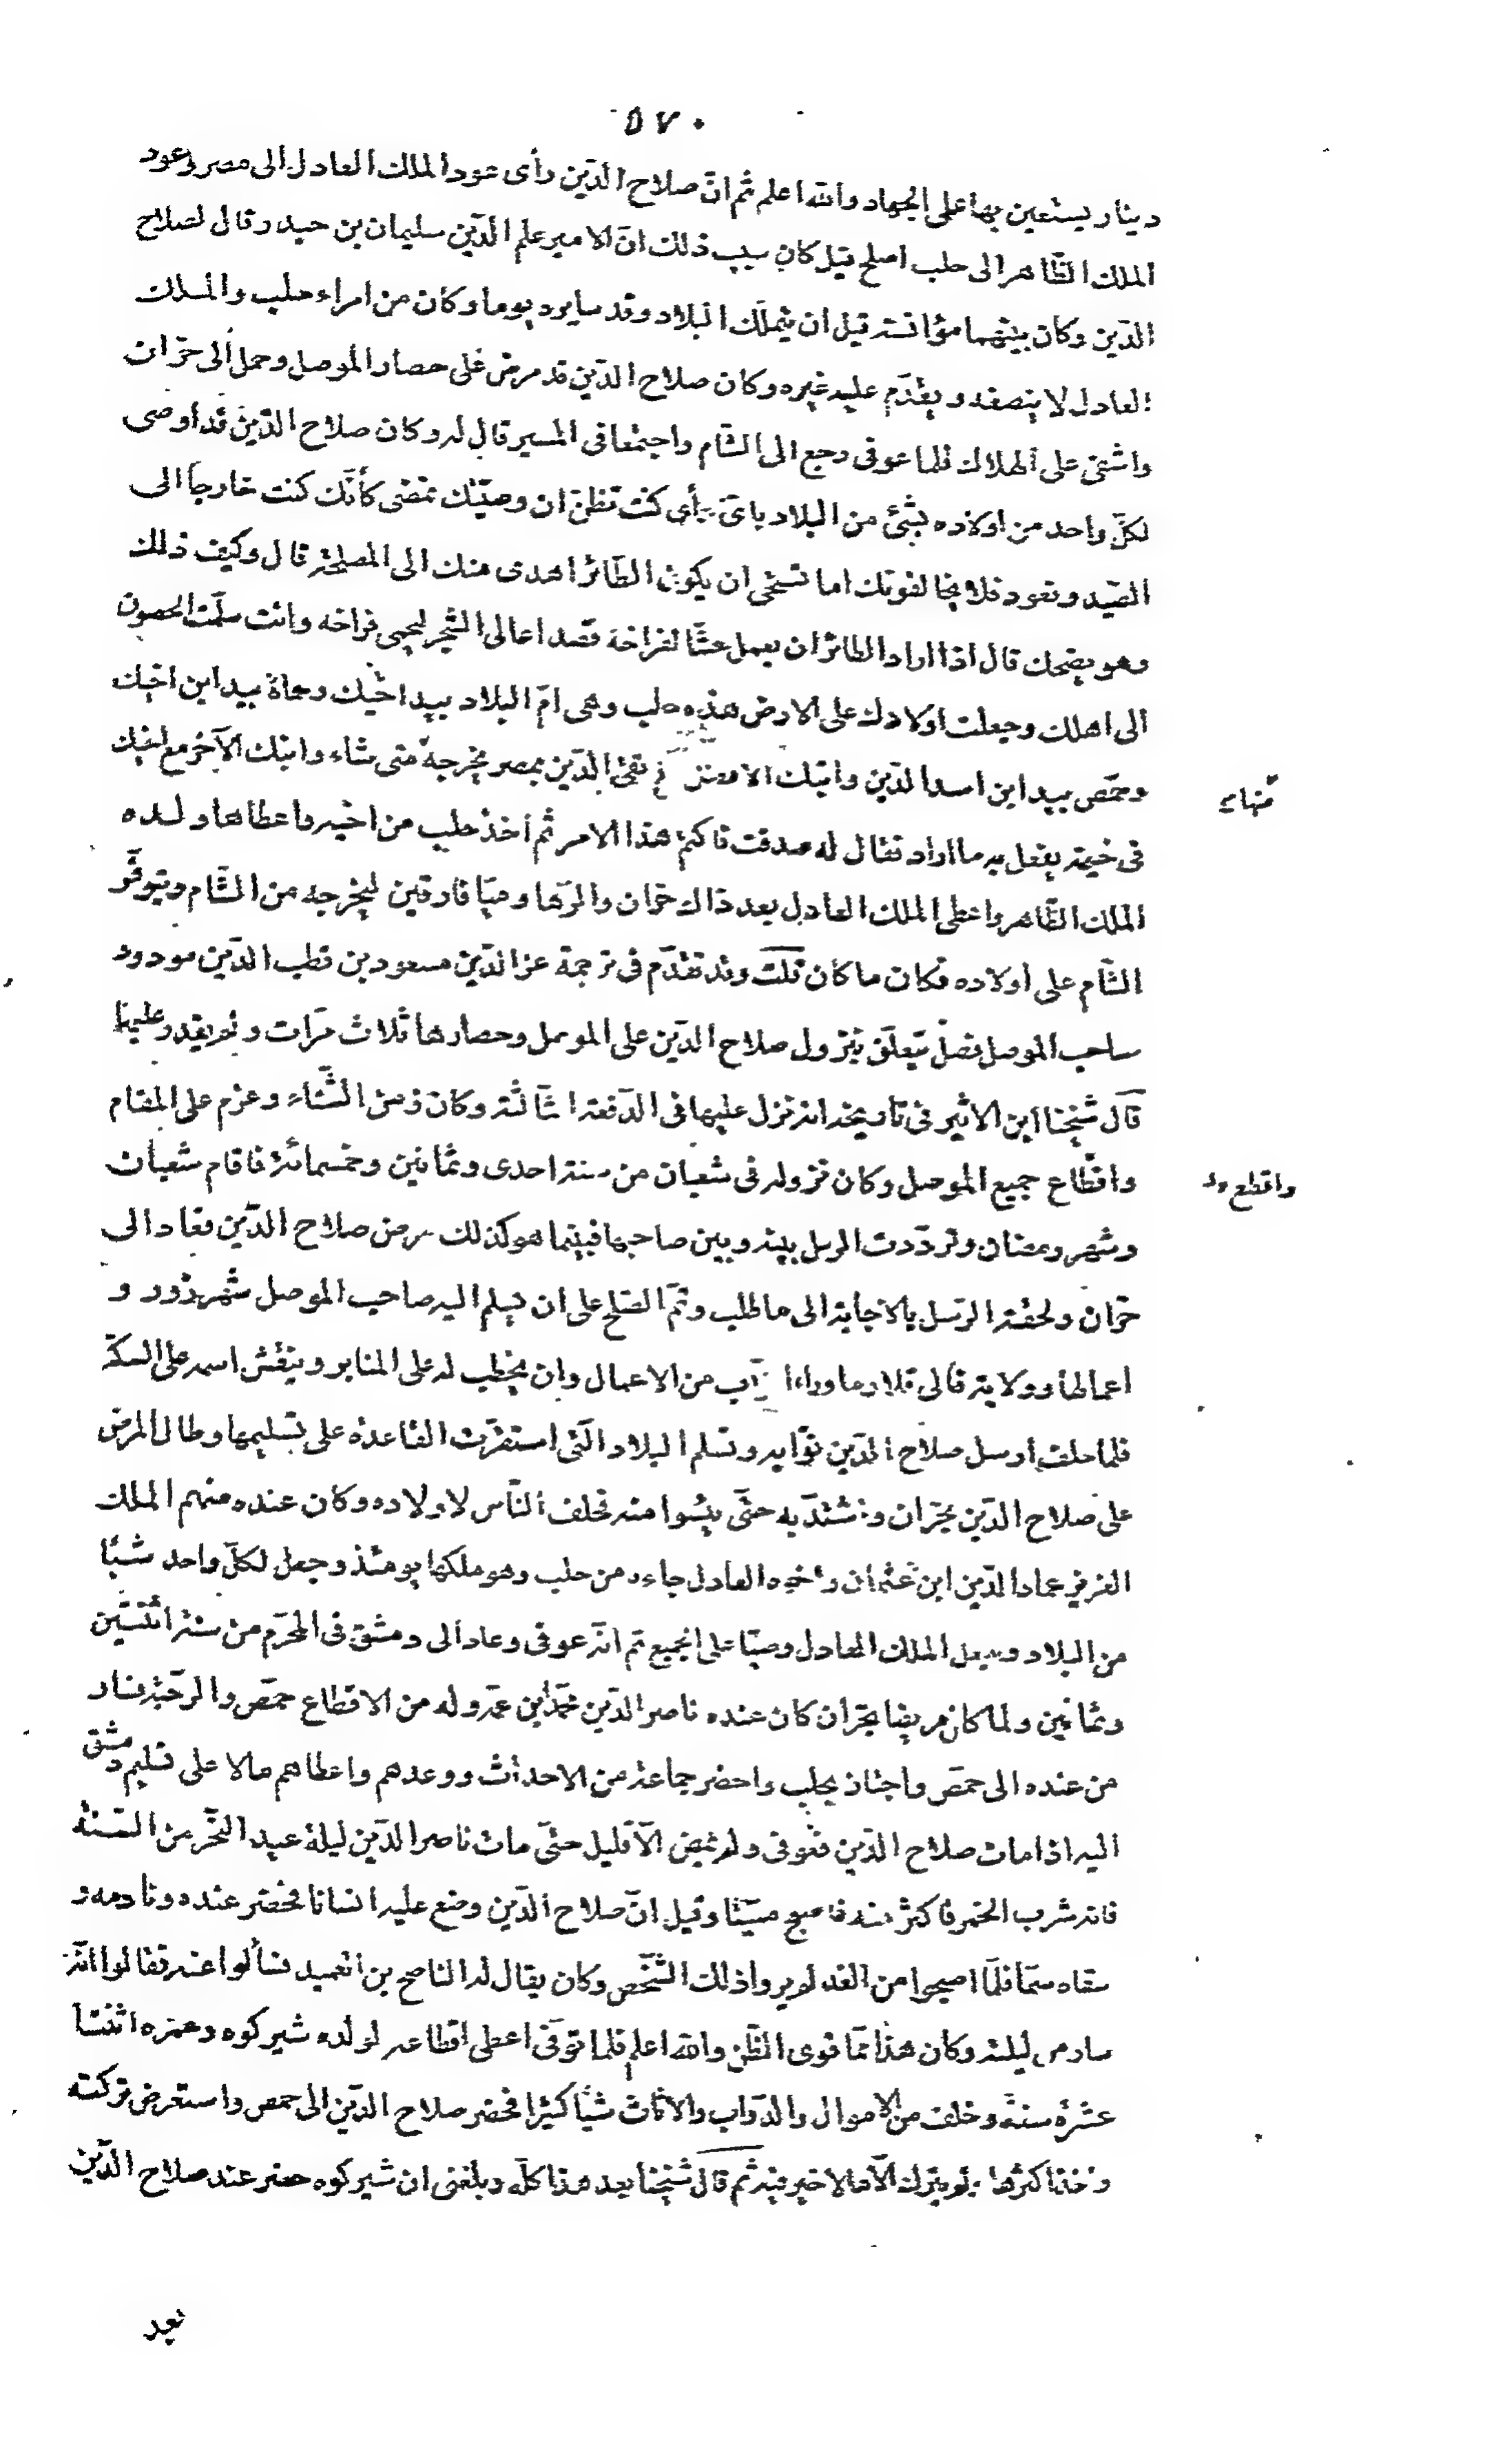 ٥٧٠
دينار يستعين بها على الجهاد والله اعلم ثم انّ صلاح الدّين رأى عود الملك العادل الى مصر وعود
الملك الظّاهر الى حلب اصلح قيل كان سبب ذلك انّ الامير علم الدّين سليمان بن حيدر قال لصلاح
الدّين وكان بينهما مؤانسة قبل ان يتملّك البلاد وقد سايره يوما وكان من امراء حلب والملك
العادل لا ينصفه ويقدّم عليه غيره وكان صلاح الدّين قد مرض على حصار الموصل وحمل الى حرّان
واشفى على الهلاك فلما عوفى رجع الى الشّام واجتمعا فى المسير قال له وكان صلاح الدّين قد اوصى
لكلّ واحد من اولاده بشئ من البلاد باىّ رأى كنت تظنّ ان وصيّتك تمضى كأنّك كنت خارجا الى
الصّيد وتعود فلا يخالفونك اما تستحى ان يكون الطّائر اهدى منك الى المصلحة قال وكيف ذلك
وهو يضحك قال اذا اراد الطائر ان يعمل عشّا لفراخه قصد اعالى الشّجر ليحمى فراخه وانت سلّمت الحصون
الى اهلك وجعلت اولادك على الارض هذه حلب وهى امّ البلاد بيد اخيك وحماة بيد ابن اخيك
وحمص بيد ابن اسد الدّين وابنك الافضل مع تقىّ الدّين بمصر يخرجه متى شاء وابنك الآخر مع اخيك
منهاىى
فى خيمة يفعل به ما اراد فقال له صدقت فاكتم هذا الامر ثم أخذ حلب من اخيه واعطاها ولده
الملك الظّاهر واعطى الملك العادل بعد ذاك حرّان والرّها وميّافارقين ليخرجه من الشّام ويتوفّر
الشّام على اولاده فكان ما كان قلت وقد تقدّم فى ترجمة عز الدّين مسعود بن قطب الدّين مودود
صاحب الموصل فصل يتعلّق بنزول صلاح الدّين على الموصل وحصارها ثلاث مرّات ولم يقدر عليها
قال شيخنا ابن الاثير فى تاريخه انه نزل عليها فى الدّفعة الثّالثة وكان زمن الشّتاء وعزم على المقام
واقطّاع جميع الموصل وكان نزوله فى شعبان من سنة احدى وثمانين وخمسمائة فاقام شعبان
واقطع ولد
وشهر رمضان وتردّدت الرسل بينه وبين صاحبها فبينما هو كذلك مرض صلاح الدّين فعاد الى
حرّان ولحقته الرّسل بالاجابة الى ما طلب وتمّ الصّلح على ان يسلم اليه صاحب الموصل شهرزور و
اعمالها وولاية قالى قلا وما وراء الزّاب من الاعمال وان يخطب له على المنابر وينقش اسمه على السكّة
فلما حلف أرسل صلاح الدّين نوّابه وتسلم البلاد الّتى استقرّت القاعدة على تسليمها وطال المرض
على صلاح الدّين بحرّان واشتدّ به حتّى يئسوا منه فحلف النّاس لاولاده وكان عنده منهم الملك
العزيز عماد الدّين ابن عثمان واخوه العادل جاءه من حلب وهو ملكها يومئذ وجعل لكلّ واحد شيئا
من البلاد وجعل الملك العادل وصيّا على الجميع ثم انّه عوفى وعاد الى دمشق فى المحرّم من سنة اثنتين
وثمانين ولما كان مريضا بحرّان كان عنده ناصر الدّين محمّد ابن عمّه وله من الاقطاع حمص والرحبة فسار
من عنده الى حمص واجتاز بحلب واحضر جماعة من الاحداث ووعدهم واعطاهم مالا على تسليم دمشق
اليه اذا مات صلاح الدّين فعوفى ولم يمض الّا قليل حتّى مات ناصر الدّين ليلة عيد النّحر من السّنة
فانه شرب الخمر فاكثر منه فاصبح ميّتا وقيل انّ صلاح الدّين وضع عليه انسانا فحضر عنده ونادمه و
سقاه سمّا فلمّا اصبحوا من الغد لم يروا ذلك الشّخص وكان يقال له الناصح بن العميد فسألوا عنه فقالوا انّه
سار من ليلته وكان هذا ممّا قوى الظّن والله اعلم فلما توفّى اعطى اقطاعه لولده شيركوه وعمره اثنتا
عشرة سنة وخلف من الاموال والدّواب والاثاث شيأ كثيرا فحضر صلاح الدّين الى حمص واستعرض تركته
واخذ اكثرها ولم يترك الّا ما لا خير فيه ثم قال شيخنا بعد هذا كلّه وبلغنى ان شيركوه حضر عند صلاح الدّين
بعد